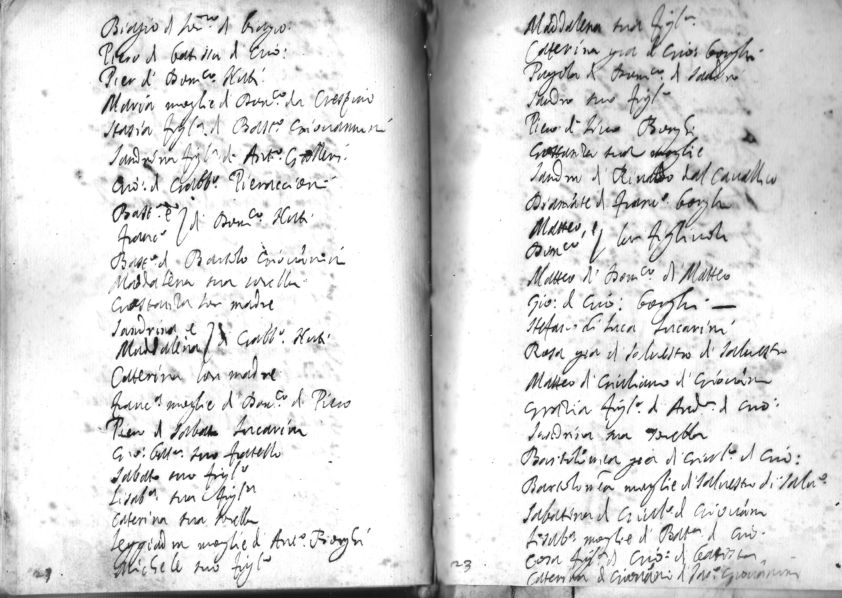 Biagio di Dom.co di Biagio.
Piero di Batista di Gio:
Pier di Dom.co
Maria moglie di Dom.co da Crespino
Stasia figl.a di Bast.o Giovannini
Sandrina figl.a di Ant.o
Gio: di Gabb.o Pieraccioni
Bast.o e
franc.o } di Dom.co
Bast.o di Bartolo Giovannini
Maddalena sua sorella
Gostanza lor madre
Sandrina e
Maddalena } di Gabb.o
Caterina lor madre
franc.a moglie di Dom.co di Piero
Piero di Sabato Lucarini
Gio: Batt.a suo fratello
Sabato suo figl.o
Lisab.a sua figl.a
Caterina sua sorella
Leggiadra moglie di Ant.o Borghi
Michele suo figl.o
23
Maddalena sua figl.a
Caterina già di Gio: Borghi
di Dom.co di Sandro
Sandro suo figl.o
Piero di Borghi
Gostanza sua moglie
Sandra di Rinaldo dal Cavallico
Diamante di franc.o Borghi
Matteo, e
Dom.co } lor figliuoli
Matteo di Dom.co di Matteo
Gio: di Gio: Borghi
Stefano di Luca Lucarini
Rosa già di Salvestro di Salvestro
Matteo di Giuliano di Giovanni
Grazia figl.a di And.a di Gio:
Sandrina sua sorella
Bartolomea già di Giul.o di Gio:
Bartolomea moglie di Salvestro di Salv.o
Sabatina di Giul.o di Giovanni
Lisab.a moglie di Batt.a di Gio.
Cosa figl.a di Gio: di Batista
Caterina di Giovanni di Giovannini
23